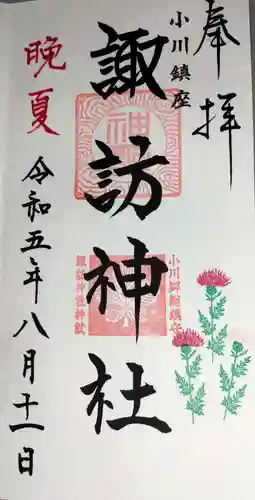 奉拝
小川鎮座
諏訪神社
晩夏
令和五年八月十一日
小川郷総鎮守
諏訪神社神紋